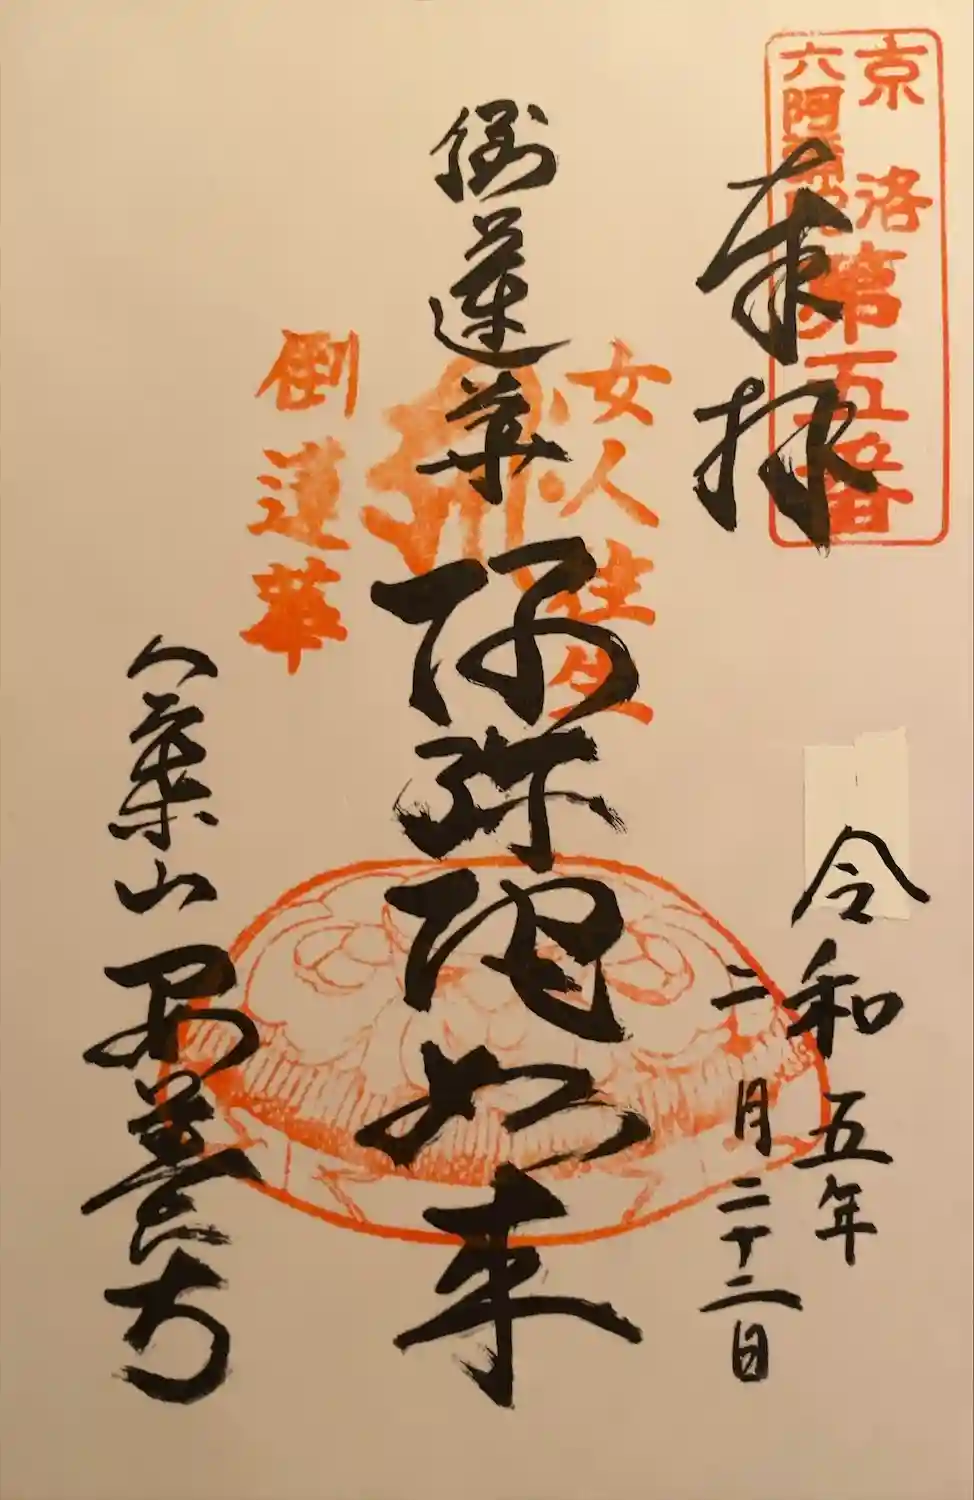 京洛
六阿彌陀
第五番
奉拝
令和五年
二月二十二日
女人往生
倒蓮華
倒蓮華
阿弥陀如来
八葉山 安養寺